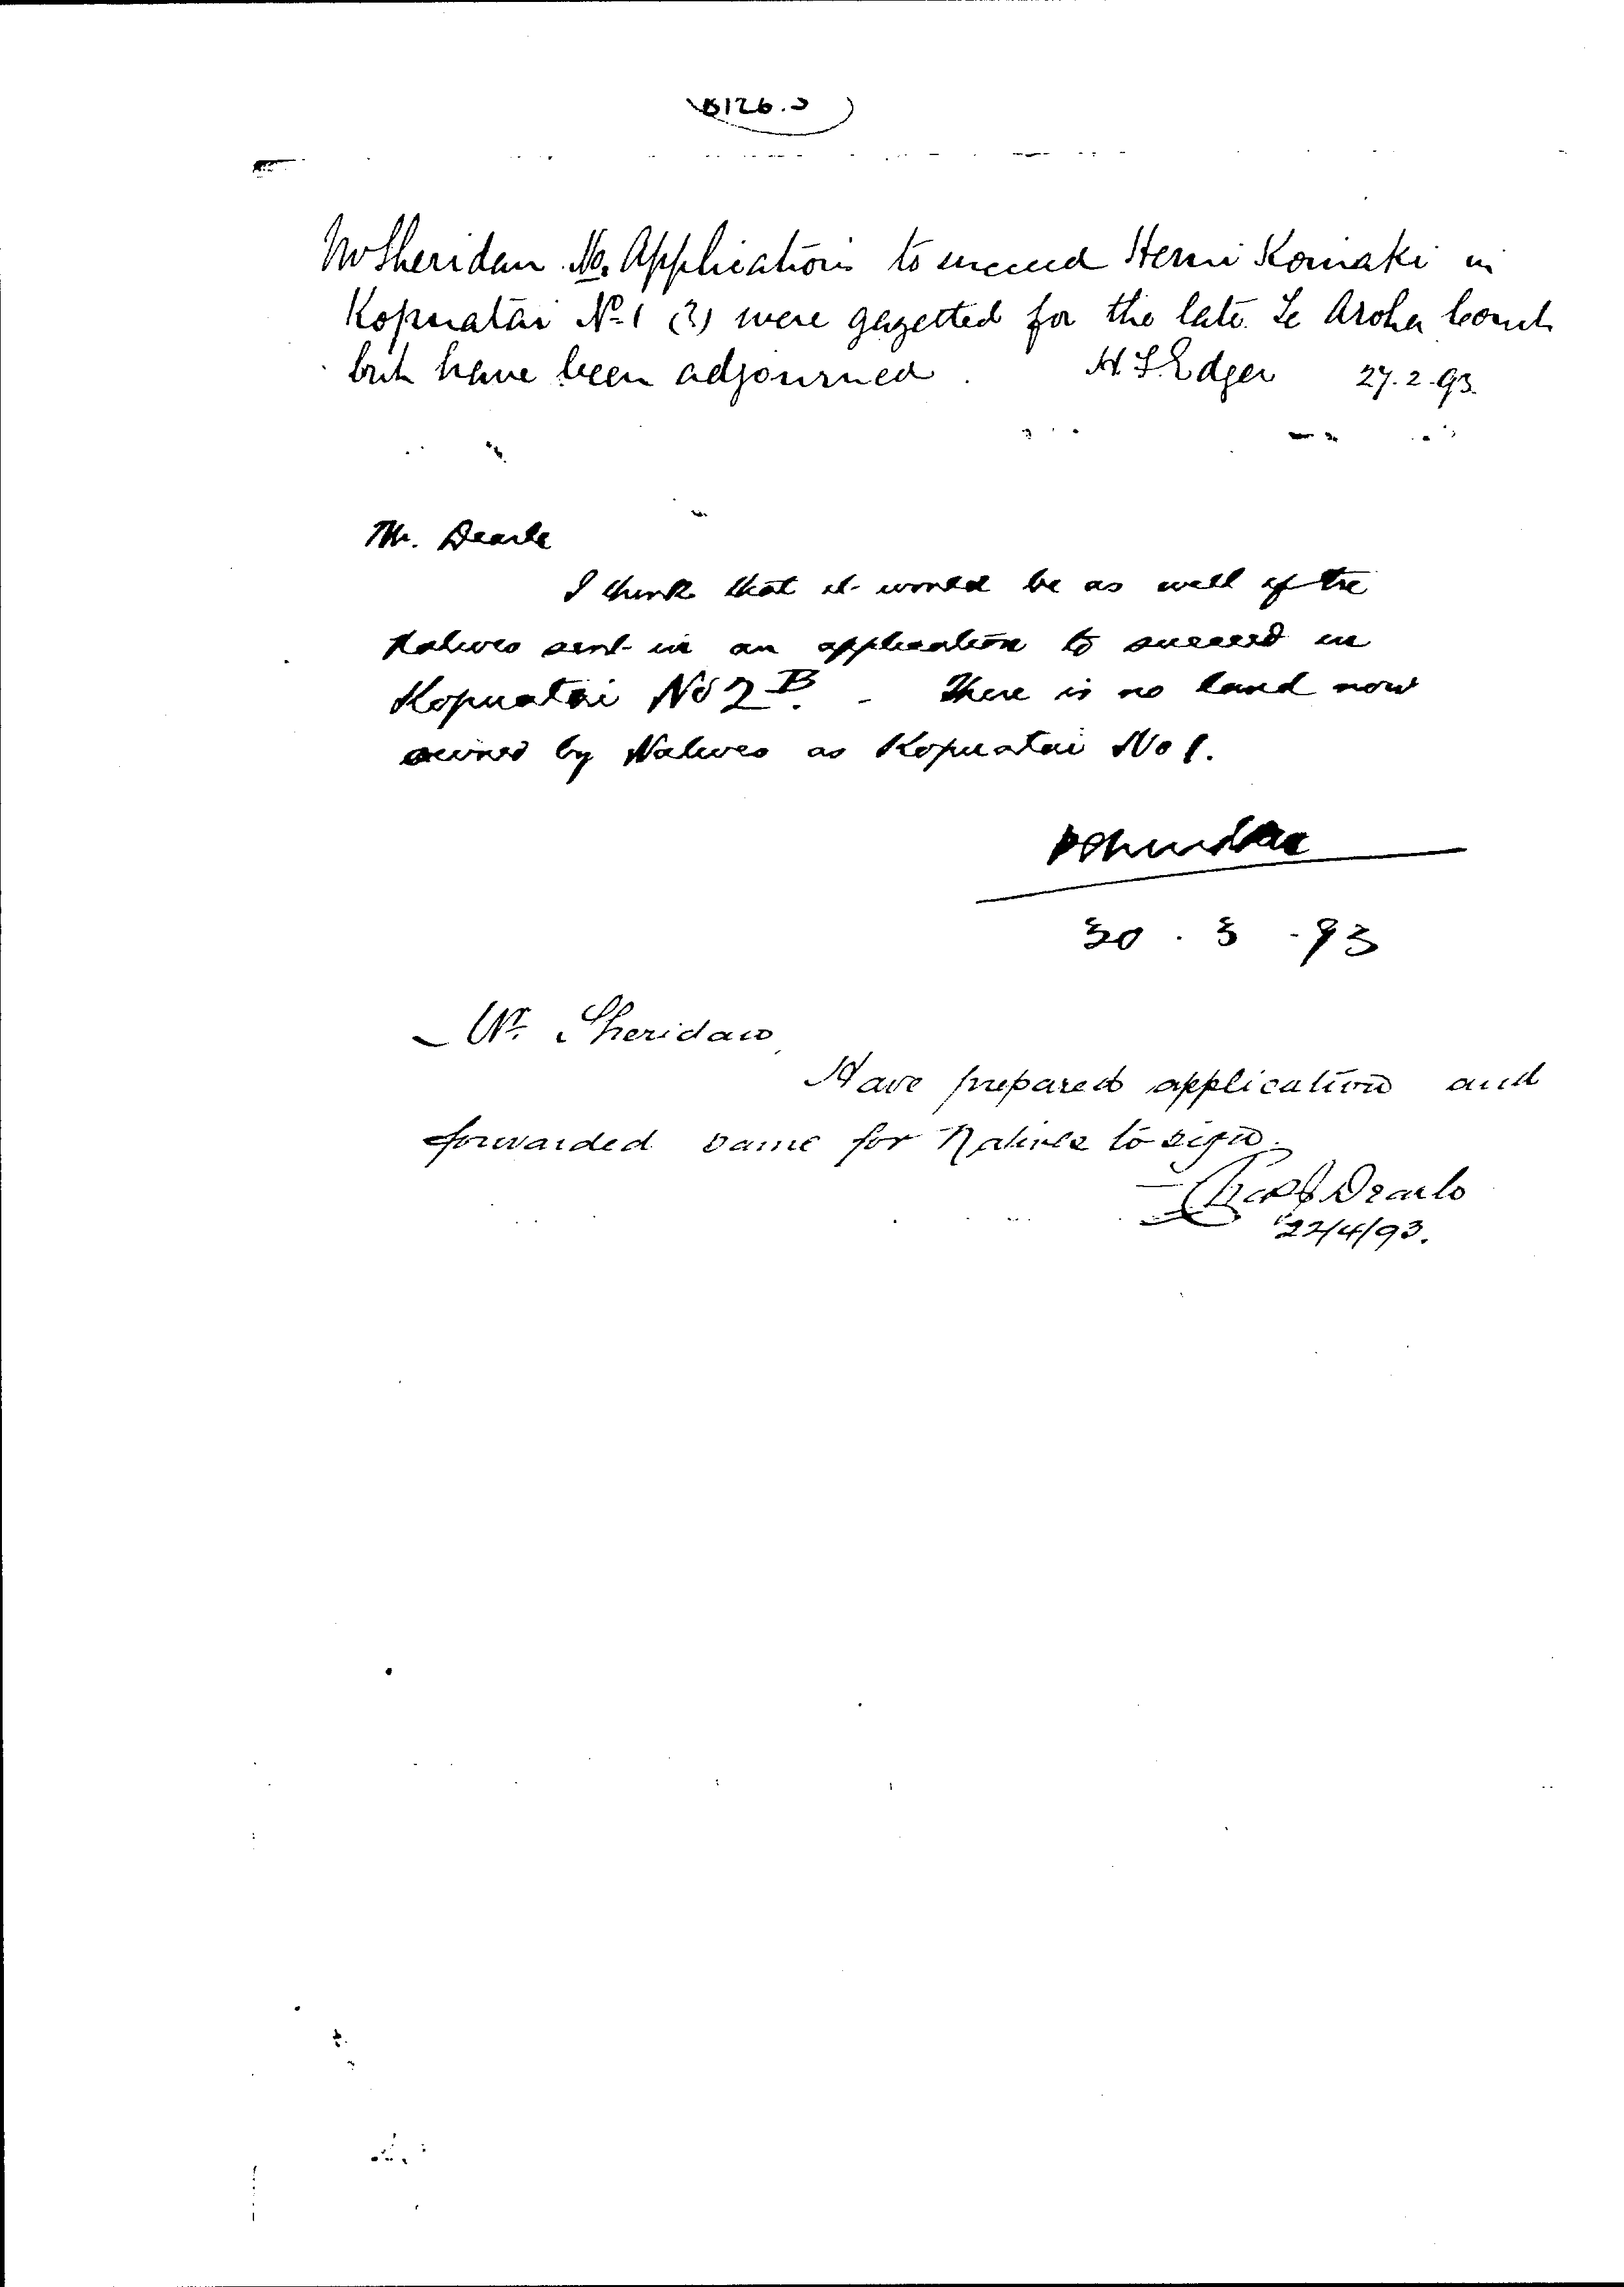 Mr Sheridan. No. Applications to succeed Hemi Komaki in
Kopuatai No 1 (?) were gazetted for the late Te Aroha Court
but have been adjourned. H. F. Edger 27.2.93.
Mr. Dearle
I think that it would be as well if the
Natives sent in an application to succeed in
Kopuatai No 2 B. - There is no land now
owned by Natives as Kopuatai No 1.
30.3.93
Mr. Sheridan,
Have prepared application and
forwarded same for Natives to sign.
Dearle
22/4/93.